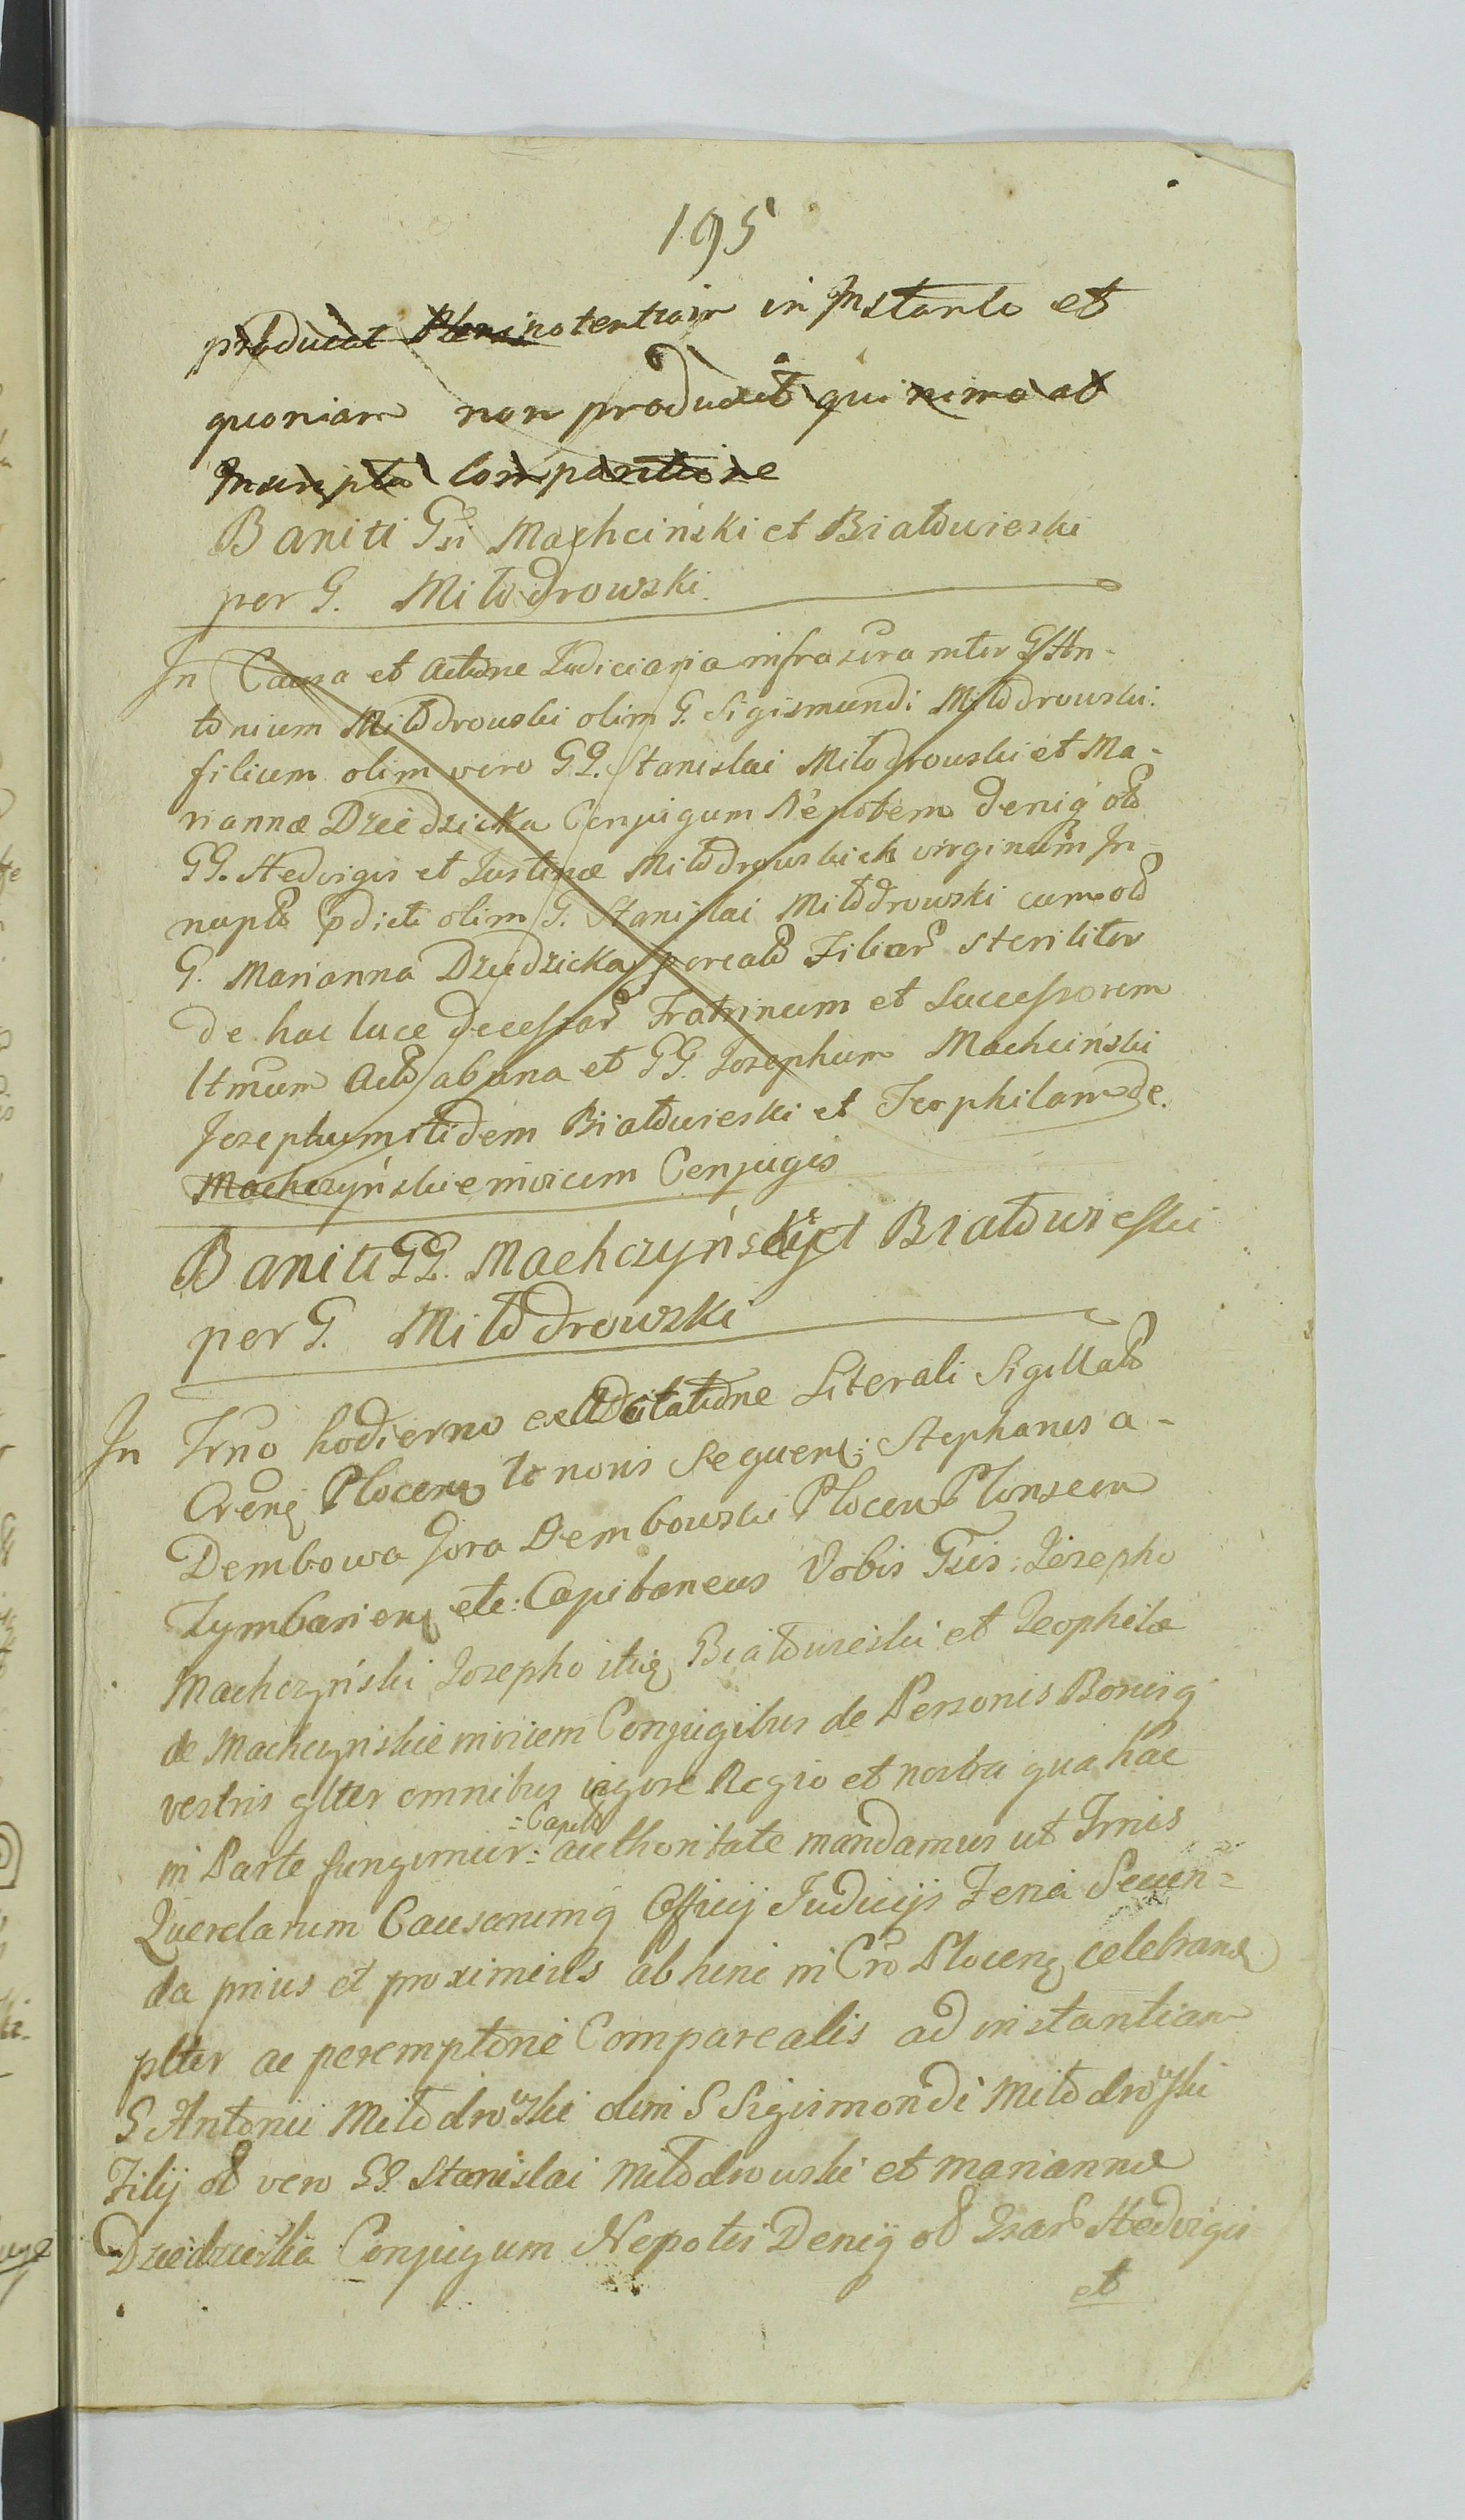 195
producat Plenipotentiam in Instanti et
quoniam non produxit quinimo ab
Inscripta Comparitione
Baniti Gsi Machciński et Białowieski
per G. Miłodrowski.
In Causa et Actione Judiciaria infrascra inter G An-
tonium Miłodrowski olim G. Sigismundi Miłodrowski
filium olim vero GG. Stanislai Miłodrowski et Ma-
riannæ Dziedzicka Conjugum Nepotem deniq olim
GG. Hedvigis et Justinæ Miłodrowskich virginum In-
nupta pdicti olim G. Stanislai Miłodrowski cum olim
G. Marianna Dziedzicka Filiar steriliter
de hac luce decessar Fratrinum et Successorem
ltmum Act ab una et GG. Josephum Machciński
Josephum itidem Białowieski et Teophilam de
Machczyńskie invicem Conjuges
Baniti GG. Machczyński et Białowieski
per G. Miłodrowski
In Trno hodierno ex Citatione Literali Sigillata
Crens Plocens tenoris sequens: Stephanus a
Dembowa Gora Dembowski Plocen Plonscen
Tymbariens etc: Capitaneus Vobis Gsis: Josepho
Machczyński Josepho itiq Białowieski et Teophilæ
de Machczyńskie invicem Conjugibus de Personis Bonisq
vestris glter omnibus vigore Regio et nostra qua hac
in Parte fungimur: =Capitli authoritate mandamus ut Trnis
Querelarum Causarumq Officij Judicijs Feria Secun=
da prius et proxime ab hinc in Cro Plocens celebrand
plter ac peremptorie Compareatis ad instantiam
G Antonii Miłodrowski olim G Sigismondi Miłodrowski
Filij ol vero GG. Stanislai Miłodrowski et Mariannæ
Dziedzicka Conjugum Nepotis Deniq ol Gsar Hedvigis
et